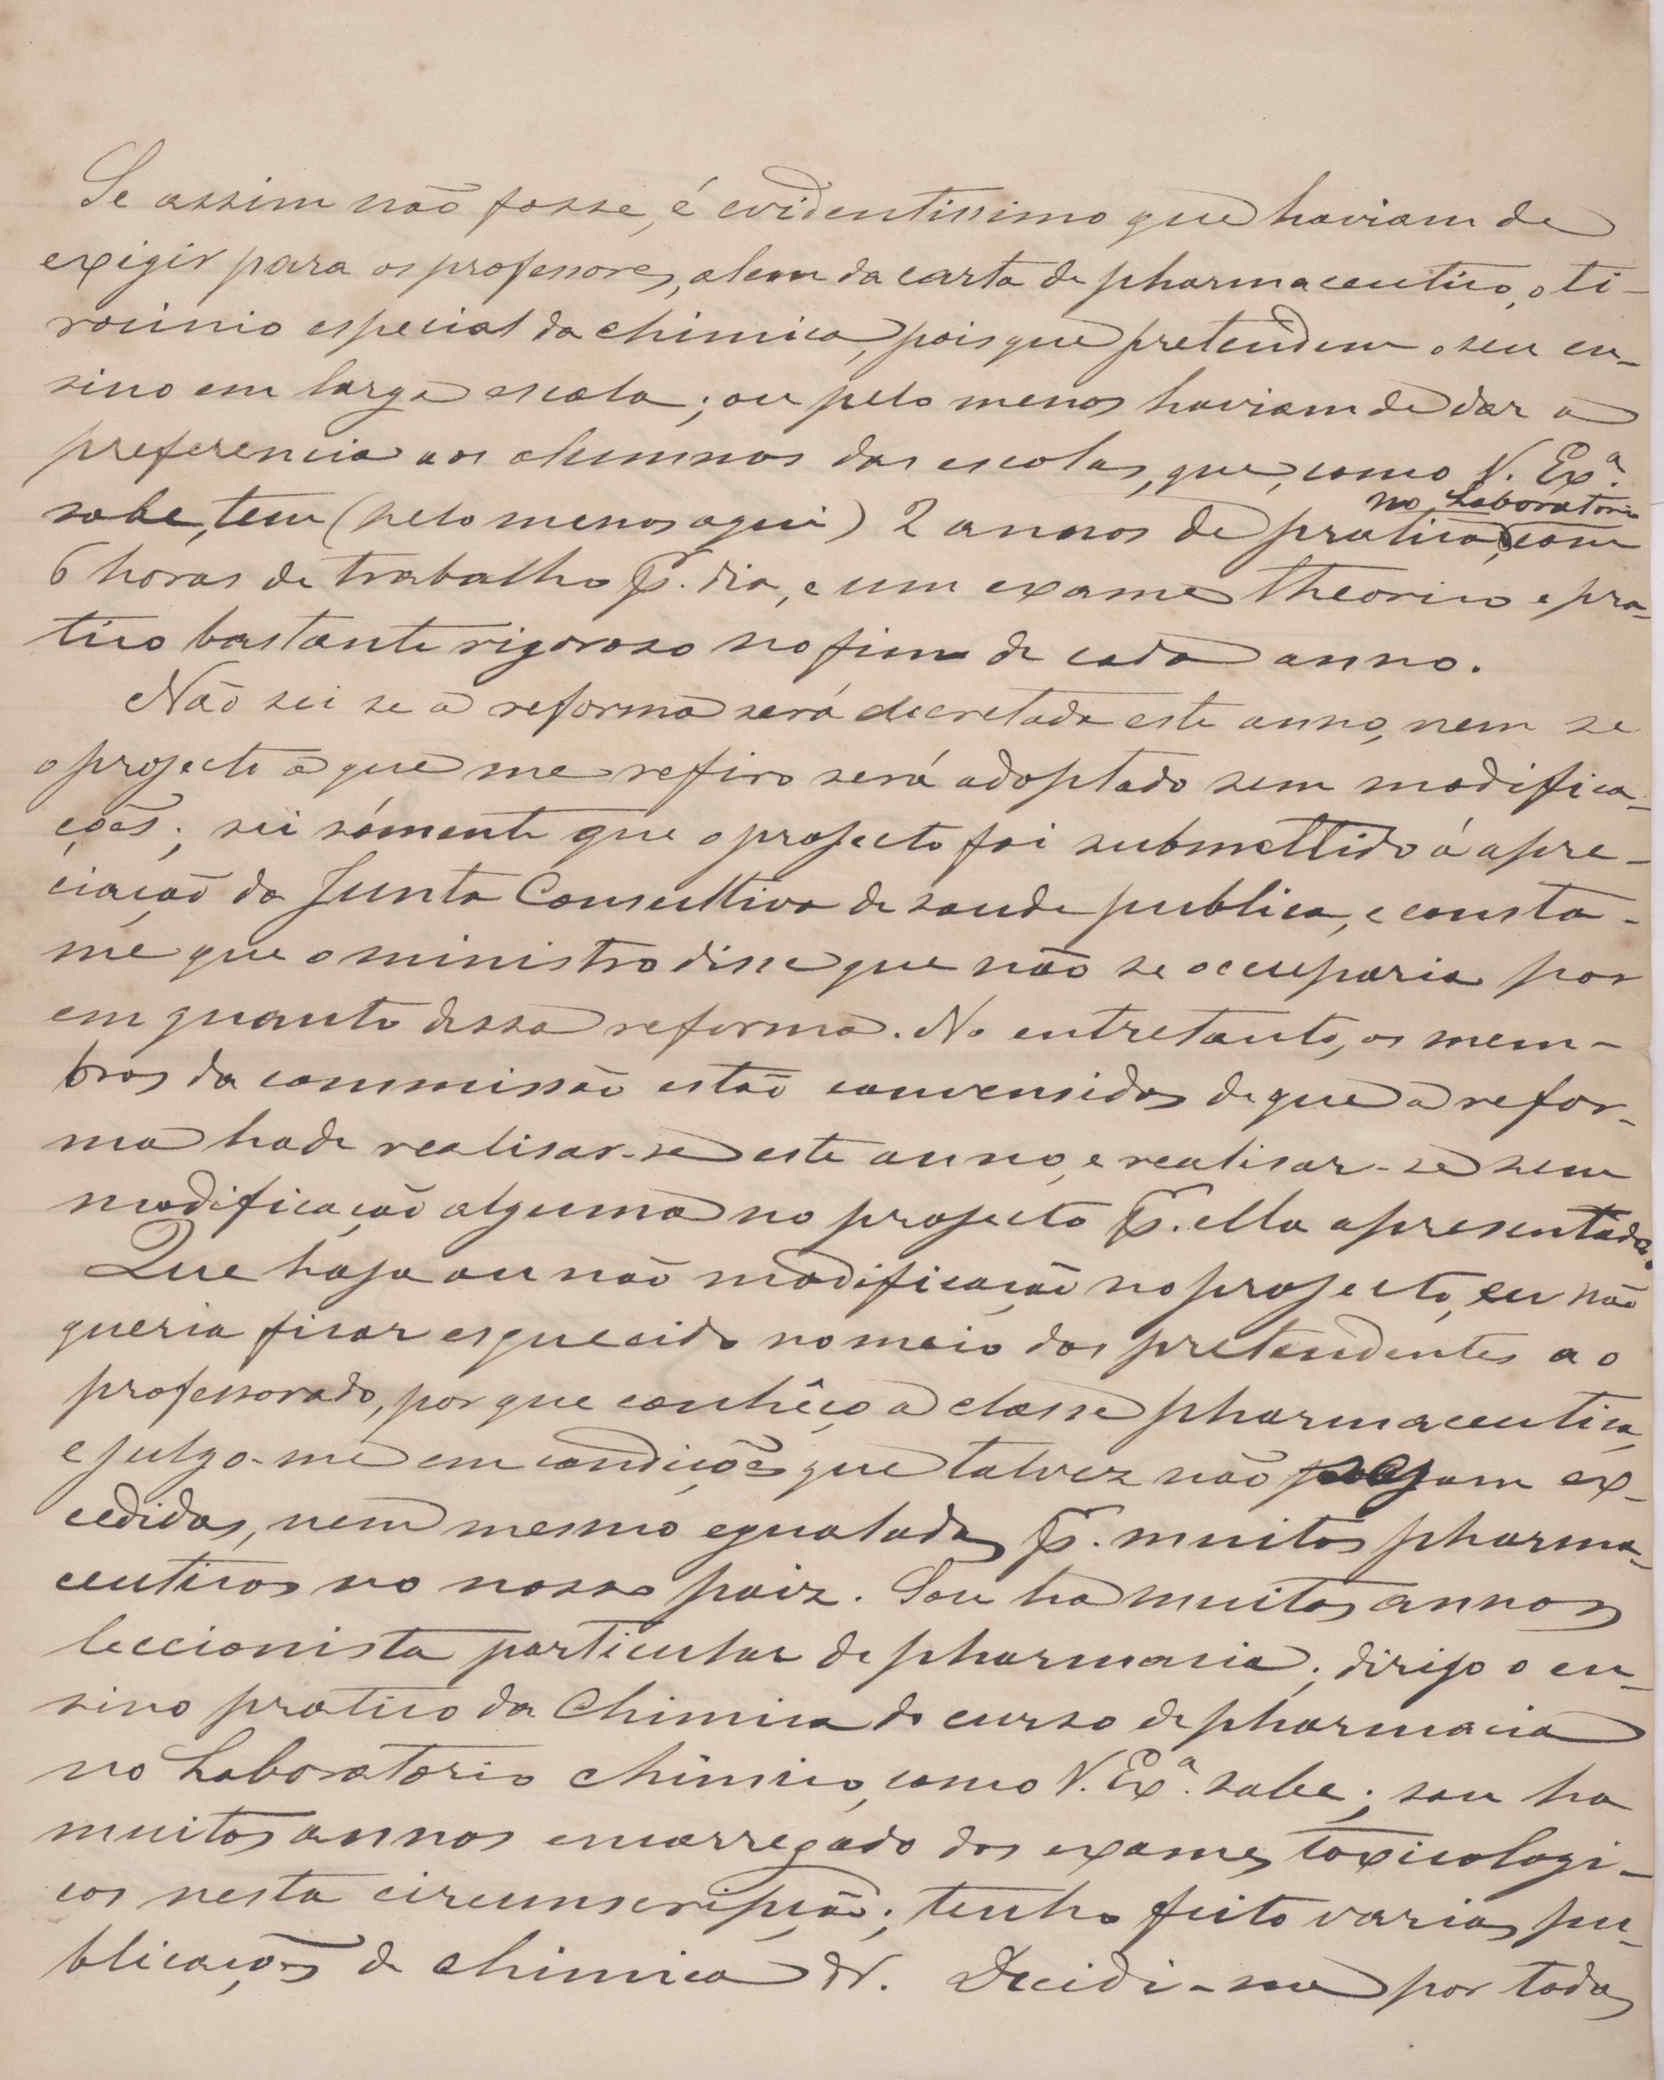 Se assim não fosse, é evidentissimo que haviam de
exigir para os professores, alem da carta de pharmaceutico, o ti-
rocinio especial da chimica, pois que pretendem o seu en-
sino em larga escala; ou pelo menos haviam de dar a
preferencia aos alumnos das escolas, que, como V. Ex.ª
sabe, tem (pelo menos aqui) 2 annos de pratica no Laboratorio, com
6 horas de trabalho p. dia, e um exame theorico e pra-
tico bastante rigoroso no fim de cada anno.
Não sei se a reforma será decretada este anno, nem se
o projecto a que me refiro será adoptado sem modifica-
ções; sei sómente que o projecto foi submettido á apre-
ciação da Junta Consultiva de saude publica, e consta-
me que o ministro disse que não se occuparia por
em quanto dessa reforma. No entretanto, os mem-
bros da commissão estão convensidos de que a refor-
ma hade realisar-se este anno, e realisar-se sem
modificação alguma no projecto p. ella apresentado.
Que haja ou não modificação no projecto, eu não
queria ficar esquecido no meio dos pretendentes ao
professorado, por que conhêço a classe pharmaceutica,
e julgo-me em condições que talvez não sejam ex-
cedidas, nem mesmo egualadas p. muitos pharma-
ceuticos no nosso paiz. Sou ha muitos annos
leccionista particular de pharmacia; dirijo o en-
sino pratico da Chimica do curso de pharmacia
no Laboratorio chimico, como V. Ex.ª sabe; sou ha
muitos annos encarregado dos exames toxicologi-
cos nesta circunscripção; tenho feito varias pu-
blicações de chimica &. Decidi-me por todas